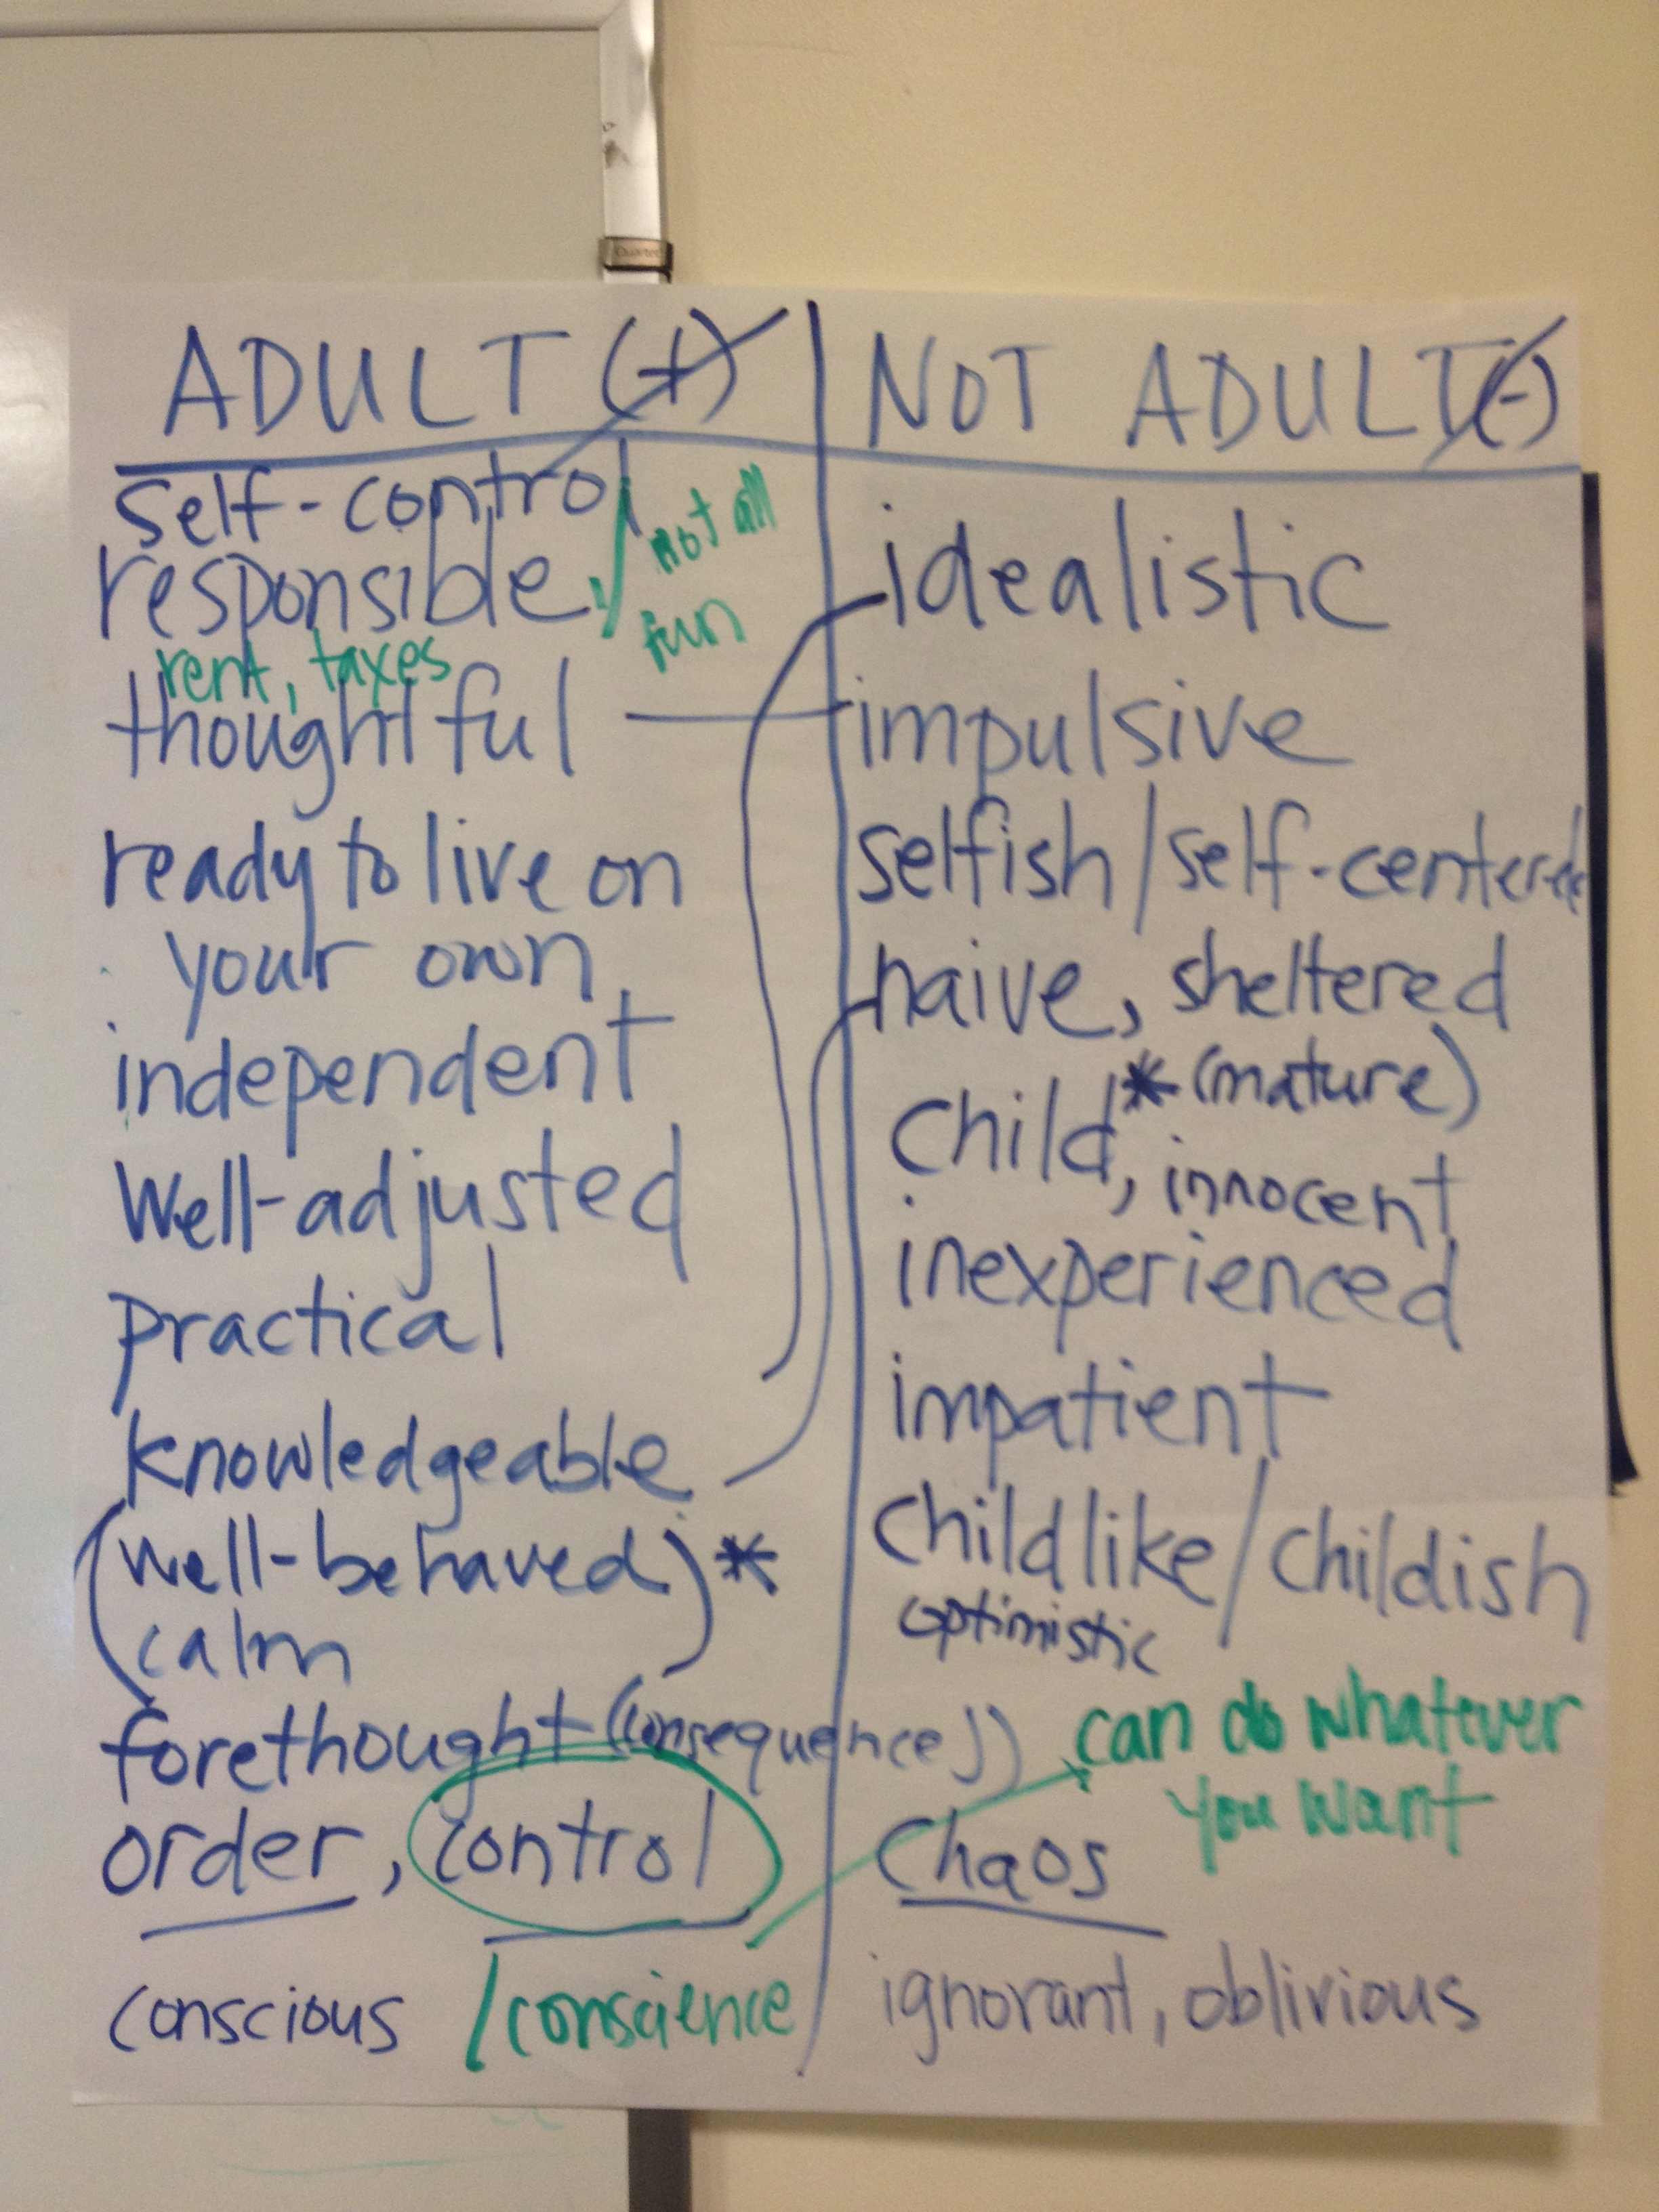 Quartet
ADULT (+)
self-control
not all
responsible,
fun
rent, taxes
thoughtful
ready to live on
your own
independent
Well-adjusted
practical
knowledgeable
(well-behaved) *
calm
forethought (consequences)
order, control
conscious /conscience
NOT ADULT (-)
idealistic
impulsive
selfish/self-centered
naive, sheltered
* (mature)
child, innocent
inexperienced
impatient
childlike/childish
optimistic
can do whatever
you want
chaos
ignorant, oblivious